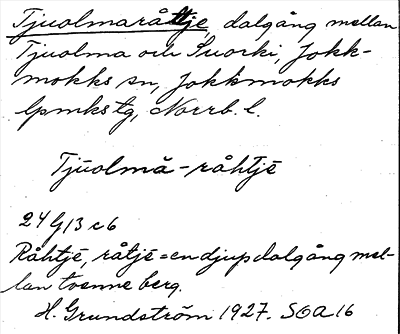 Tjuolmaråttje, dalgång mellan
Tjuolma och Suorki, Jokk-
mokks sn, Jokkmokks
lpmks tg, Norrb. l.
Tjuolmā-råhtjē
24 G/3 c6
Råhtjē, råtjē = en djup dalgång mel-
lan tvenne berg.
H. Grundström 1927. SOA 16